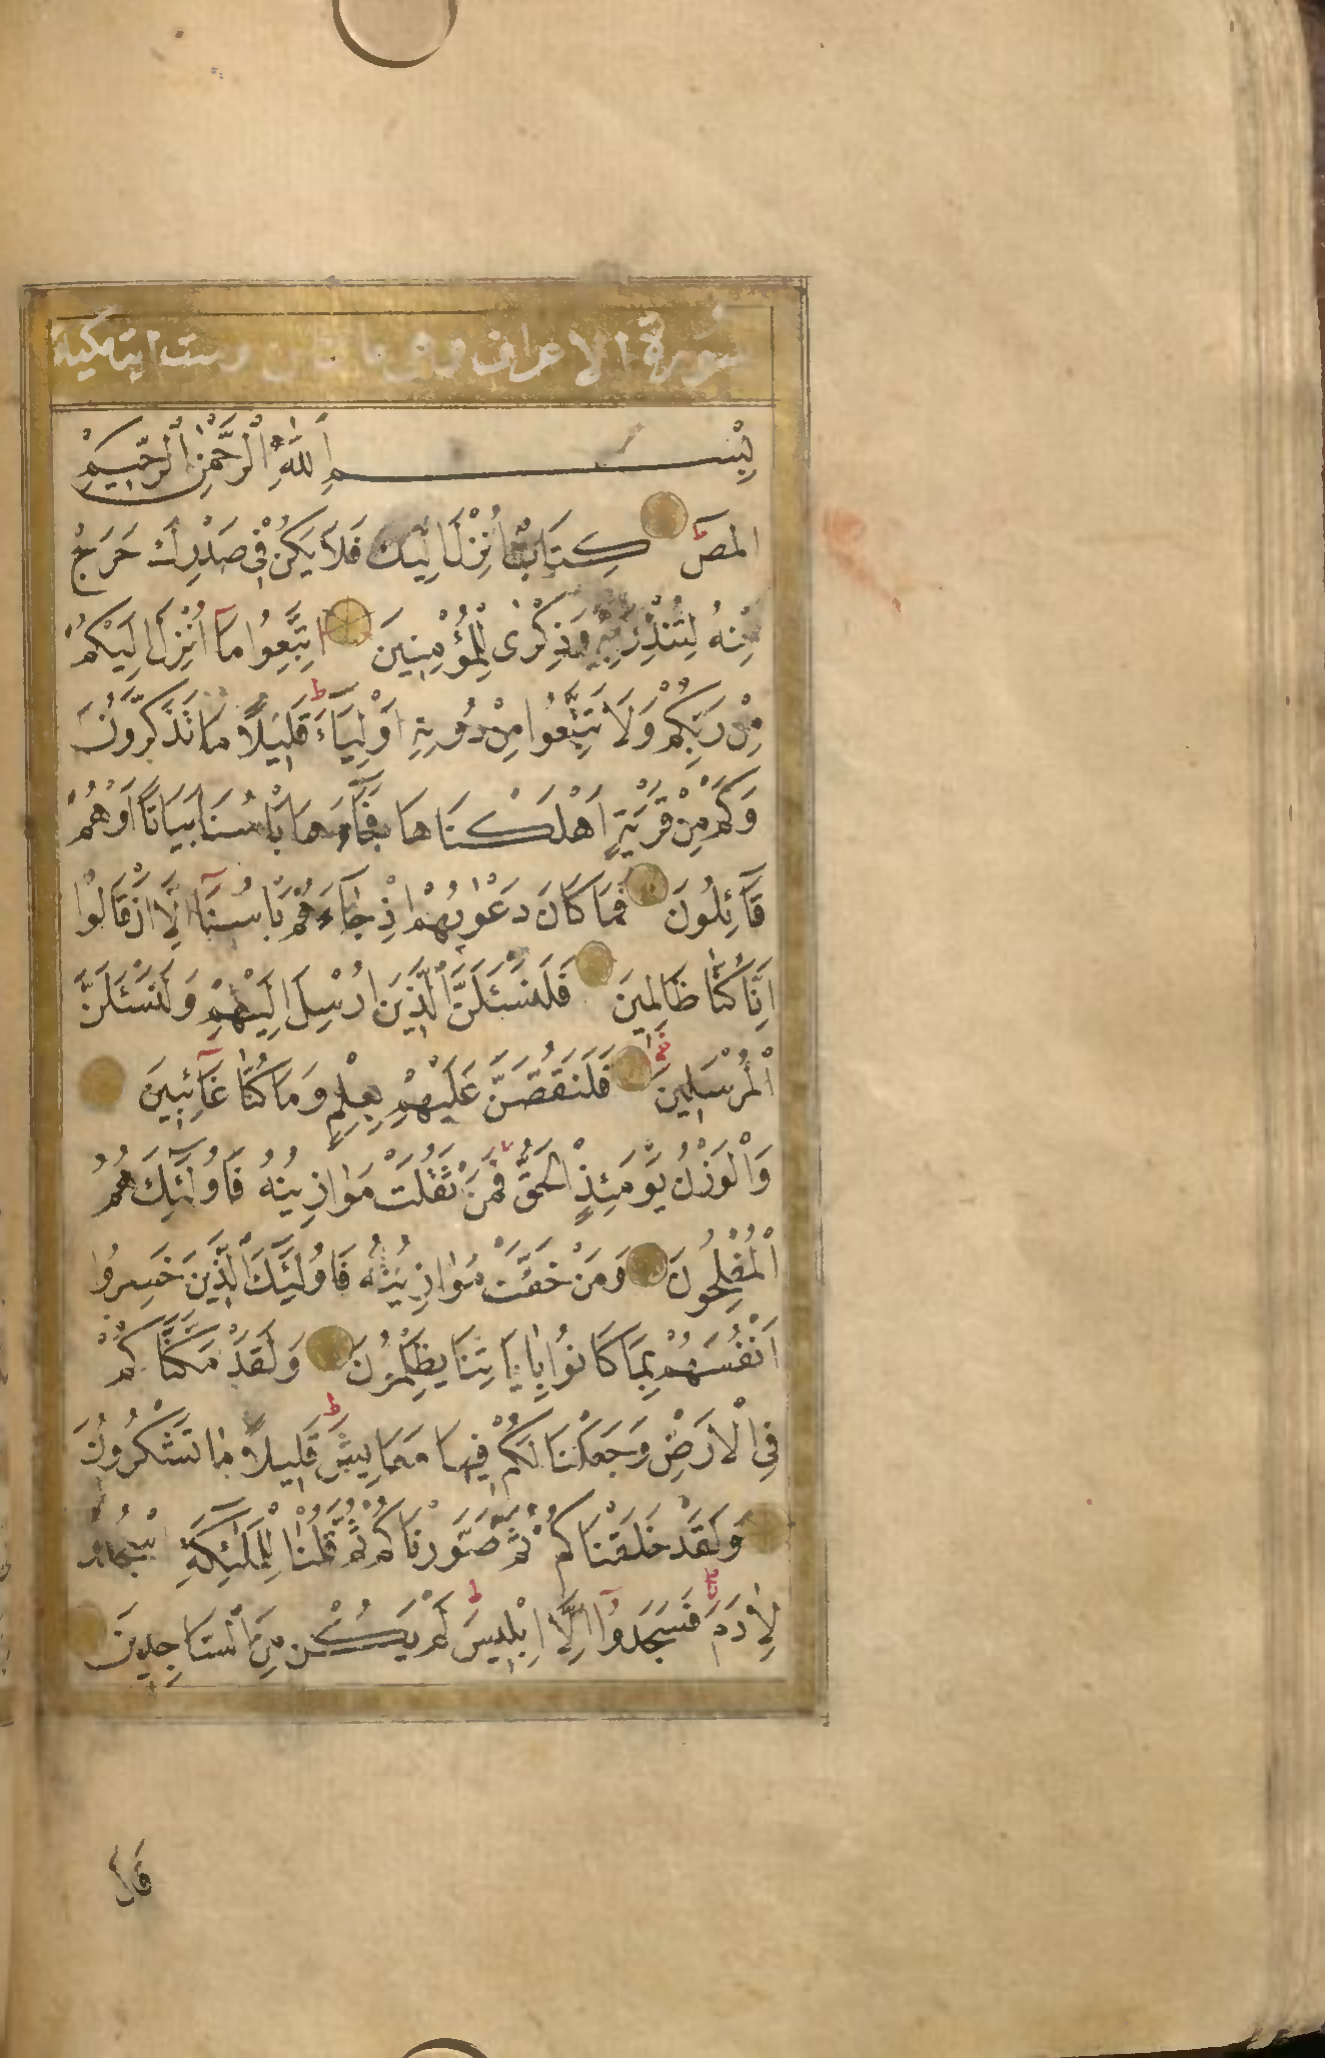 سورة الاعراف مائتان وست اية مكية
بِسْمِ اللّٰهِ الرَّحْمٰنِ الرَّحِيمِ
المص كِتَابٌ اُنْزِلَ اِلَيْكَ فَلَا يَكُنْ فِي صَدْرِكَ حَرَجٌ
مِنْهُ لِتُنْذِرَ بِهِ وَذِكْرٰى لِلْمُؤْمِنِينَ اِتَّبِعُوا مَآ اُنْزِلَ اِلَيْكُمْ
مِنْ رَبِّكُمْ وَلَا تَتَّبِعُوا مِنْ دُونِهِ اَوْلِيَآءَ ط قَلِيلًا مَا تَذَكَّرُونَ
وَكَمْ مِنْ قَرْيَةٍ اَهْلَكْنَاهَا فَجَآءَهَا بَاْسُنَا بَيَاتًا اَوْ هُمْ
قَآئِلُونَ فَمَا كَانَ دَعْوٰيهُمْ اِذْ جَآءَهُمْ بَاْسُنَآ اِلَّا اَنْ قَالُوا
اِنَّا كُنَّا ظَالِمِينَ فَلَنَسْئَلَنَّ الَّذِينَ اُرْسِلَ اِلَيْهِمْ وَلَنَسْئَلَنَّ
الْمُرْسَلِينَ فَلَنَقُصَّنَّ عَلَيْهِمْ بِعِلْمٍ وَمَا كُنَّا غَآئِبِينَ
وَالْوَزْنُ يَوْمَئِذٍ الْحَقُّ فَمَنْ ثَقُلَتْ مَوَازِينُهُ فَاُولٰٓئِكَ هُمُ
الْمُفْلِحُونَ وَمَنْ خَفَّتْ مَوَازِينُهُ فَاُولٰٓئِكَ الَّذِينَ خَسِرُوا
اَنْفُسَهُمْ بِمَا كَانُوا بِاٰيَاتِنَا يَظْلِمُونَ وَلَقَدْ مَكَّنَّاكُمْ
فِي الْاَرْضِ وَجَعَلْنَا لَكُمْ فِيهَا مَعَايِشَ ط قَلِيلًا مَا تَشْكُرُونَ
وَلَقَدْ خَلَقْنَاكُمْ ثُمَّ صَوَّرْنَاكُمْ ثُمَّ قُلْنَا لِلْمَلٰٓئِكَةِ اسْجُدُوا
لِاٰدَمَ فَسَجَدُوٓا اِلَّآ اِبْلِيسَ ط لَمْ يَكُنْ مِنَ السَّاجِدِينَ
قَالَ